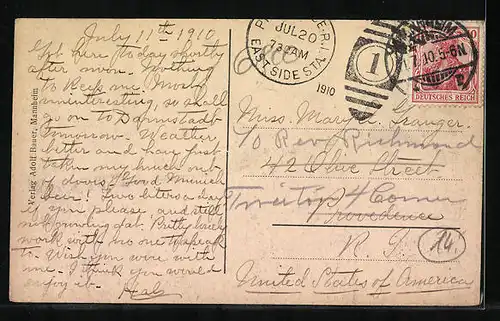 July 11th 1910
Got here today shortly
after noon. Nothing
to        me. Mostly
uninteresting, so shall
go on to Darmstadt
tomorrow. Weather
better and have just
taken my lunch out
of doors. Good Munich
beer! Two liters a day
if you please, and still
not        that. Pretty lonely
work with no one to speak
to. Wish you were with
me. I think you would
enjoy it. Hal
Verlag Adolf Bauer, Mannheim
JUL 20
7 30 AM
EAST SIDE STA.
1910
1
DEUTSCHES REICH
Miss Mary E. Granger.
c/o Rev Richmond
42 Olive Street
4 Corner
Providence
R. I.
14.
United States of America